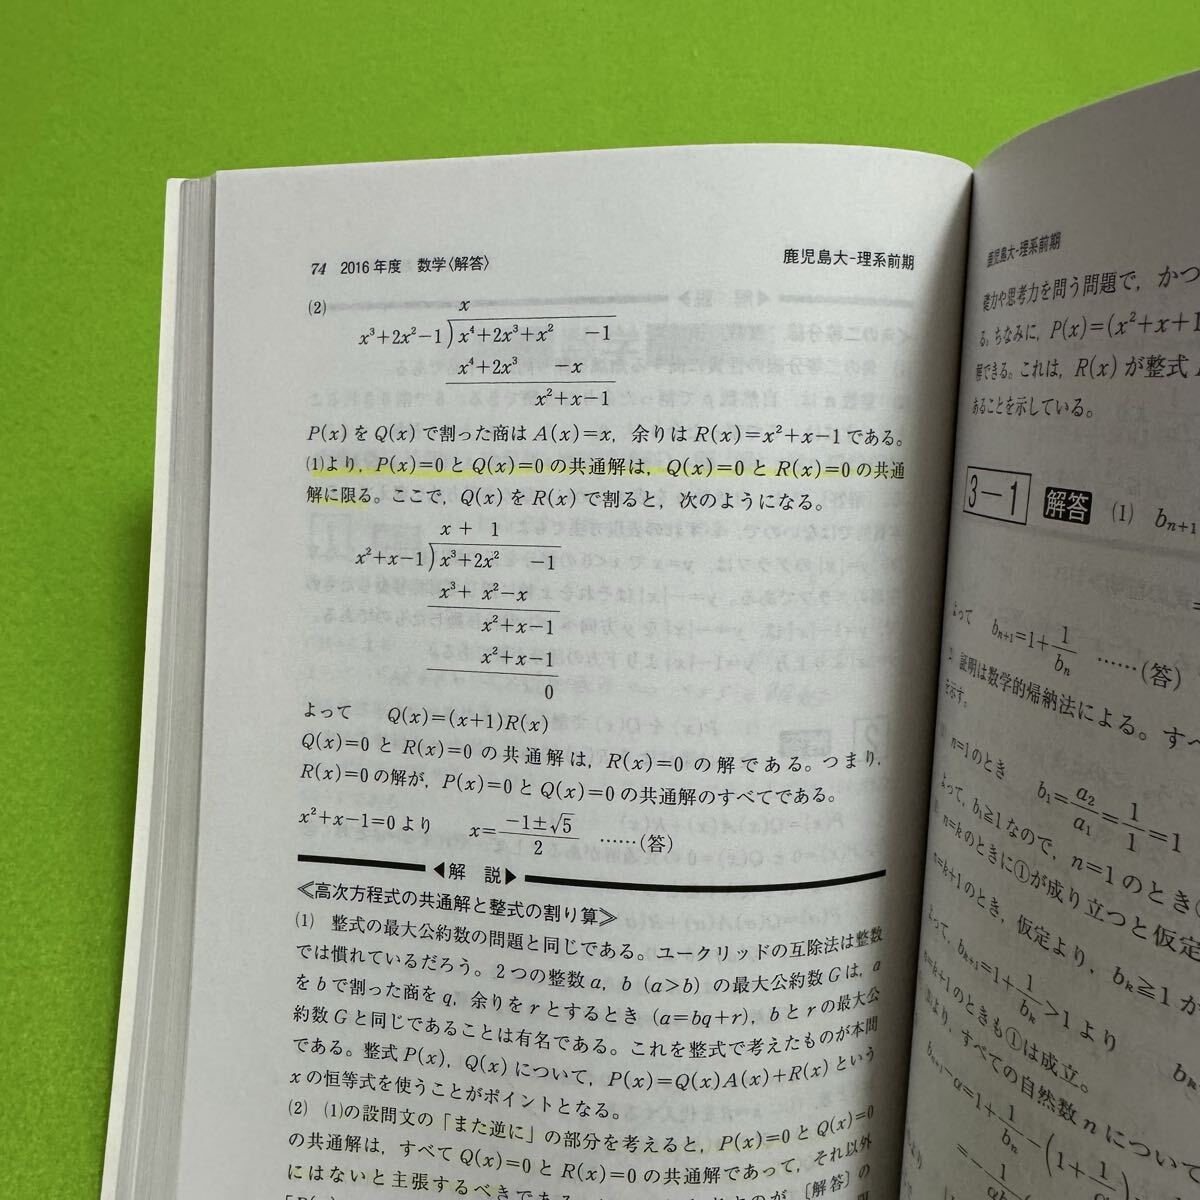 74 2016年度 数学〈解答〉 鹿児島大-理系前期
(2) x
x³+2x²-1)x⁴+2x³+x² -1
x⁴+2x³ -x
x²+x-1
P(x)をQ(x)で割った商はA(x)=x, 余りはR(x)=x²+x-1である。
(1)より, P(x)=0とQ(x)=0の共通解は, Q(x)=0とR(x)=0の共通
解に限る。ここで, Q(x)をR(x)で割ると, 次のようになる。
x + 1
x²+x-1)x³+2x² -1
x³+ x²-x
x²+x-1
x²+x-1
0
よって Q(x)=(x+1)R(x)
Q(x)=0とR(x)=0の共通解は, R(x)=0の解である。つまり,
R(x)=0の解が, P(x)=0とQ(x)=0の共通解のすべてである。
x²+x-1=0より x=(-1±√5)/2 ……(答)
◀解 説▶
≪高次方程式の共通解と整式の割り算≫
(1) 整式の最大公約数の問題と同じである。ユークリッドの互除法は整数
では慣れているだろう。2つの整数a, b (a>b) の最大公約数Gは, a
をbで割った商をq, 余りをrとするとき (a=bq+r), bとrの最大公
約数Gと同じであることは有名である。これを整式で考えたものが本問
である。整式P(x), Q(x)について, P(x)=Q(x)A(x)+R(x)という
xの恒等式を使うことがポイントとなる。
(2) (1)の設問文の「また逆に」の部分を考えると, P(x)=0とQ(x)=0
の共通解は, すべてQ(x)=0とR(x)=0の共通解であって, それ以外
にはないと主張するべきである
鹿児島大-理系前期
礎力や思考力を問う問題で, かつ
る。ちなみに, P(x)=(x²+x+1
解できる。これは, R(x)が整式
あることを示している。
3-1 解答 (1) bₙ₊₁
よって bₙ₊₁=1+1/bₙ ……(答)
証明は数学的帰納法による。すべ
を示す。
n=1のとき b₁=a₂/a₁=1/1=1
よって, b₁≧1なので, n=1のとき
n=kのときに①が成り立つと仮定
n=k+1のとき, 仮定より, bₖ≧1が
よって, bₖ₊₁=1+1/bₖ>1より
n=k+1のときも①は成立。
より, すべての自然数nについて
bₙ₊₁-α=1+1/bₙ-(1+1/